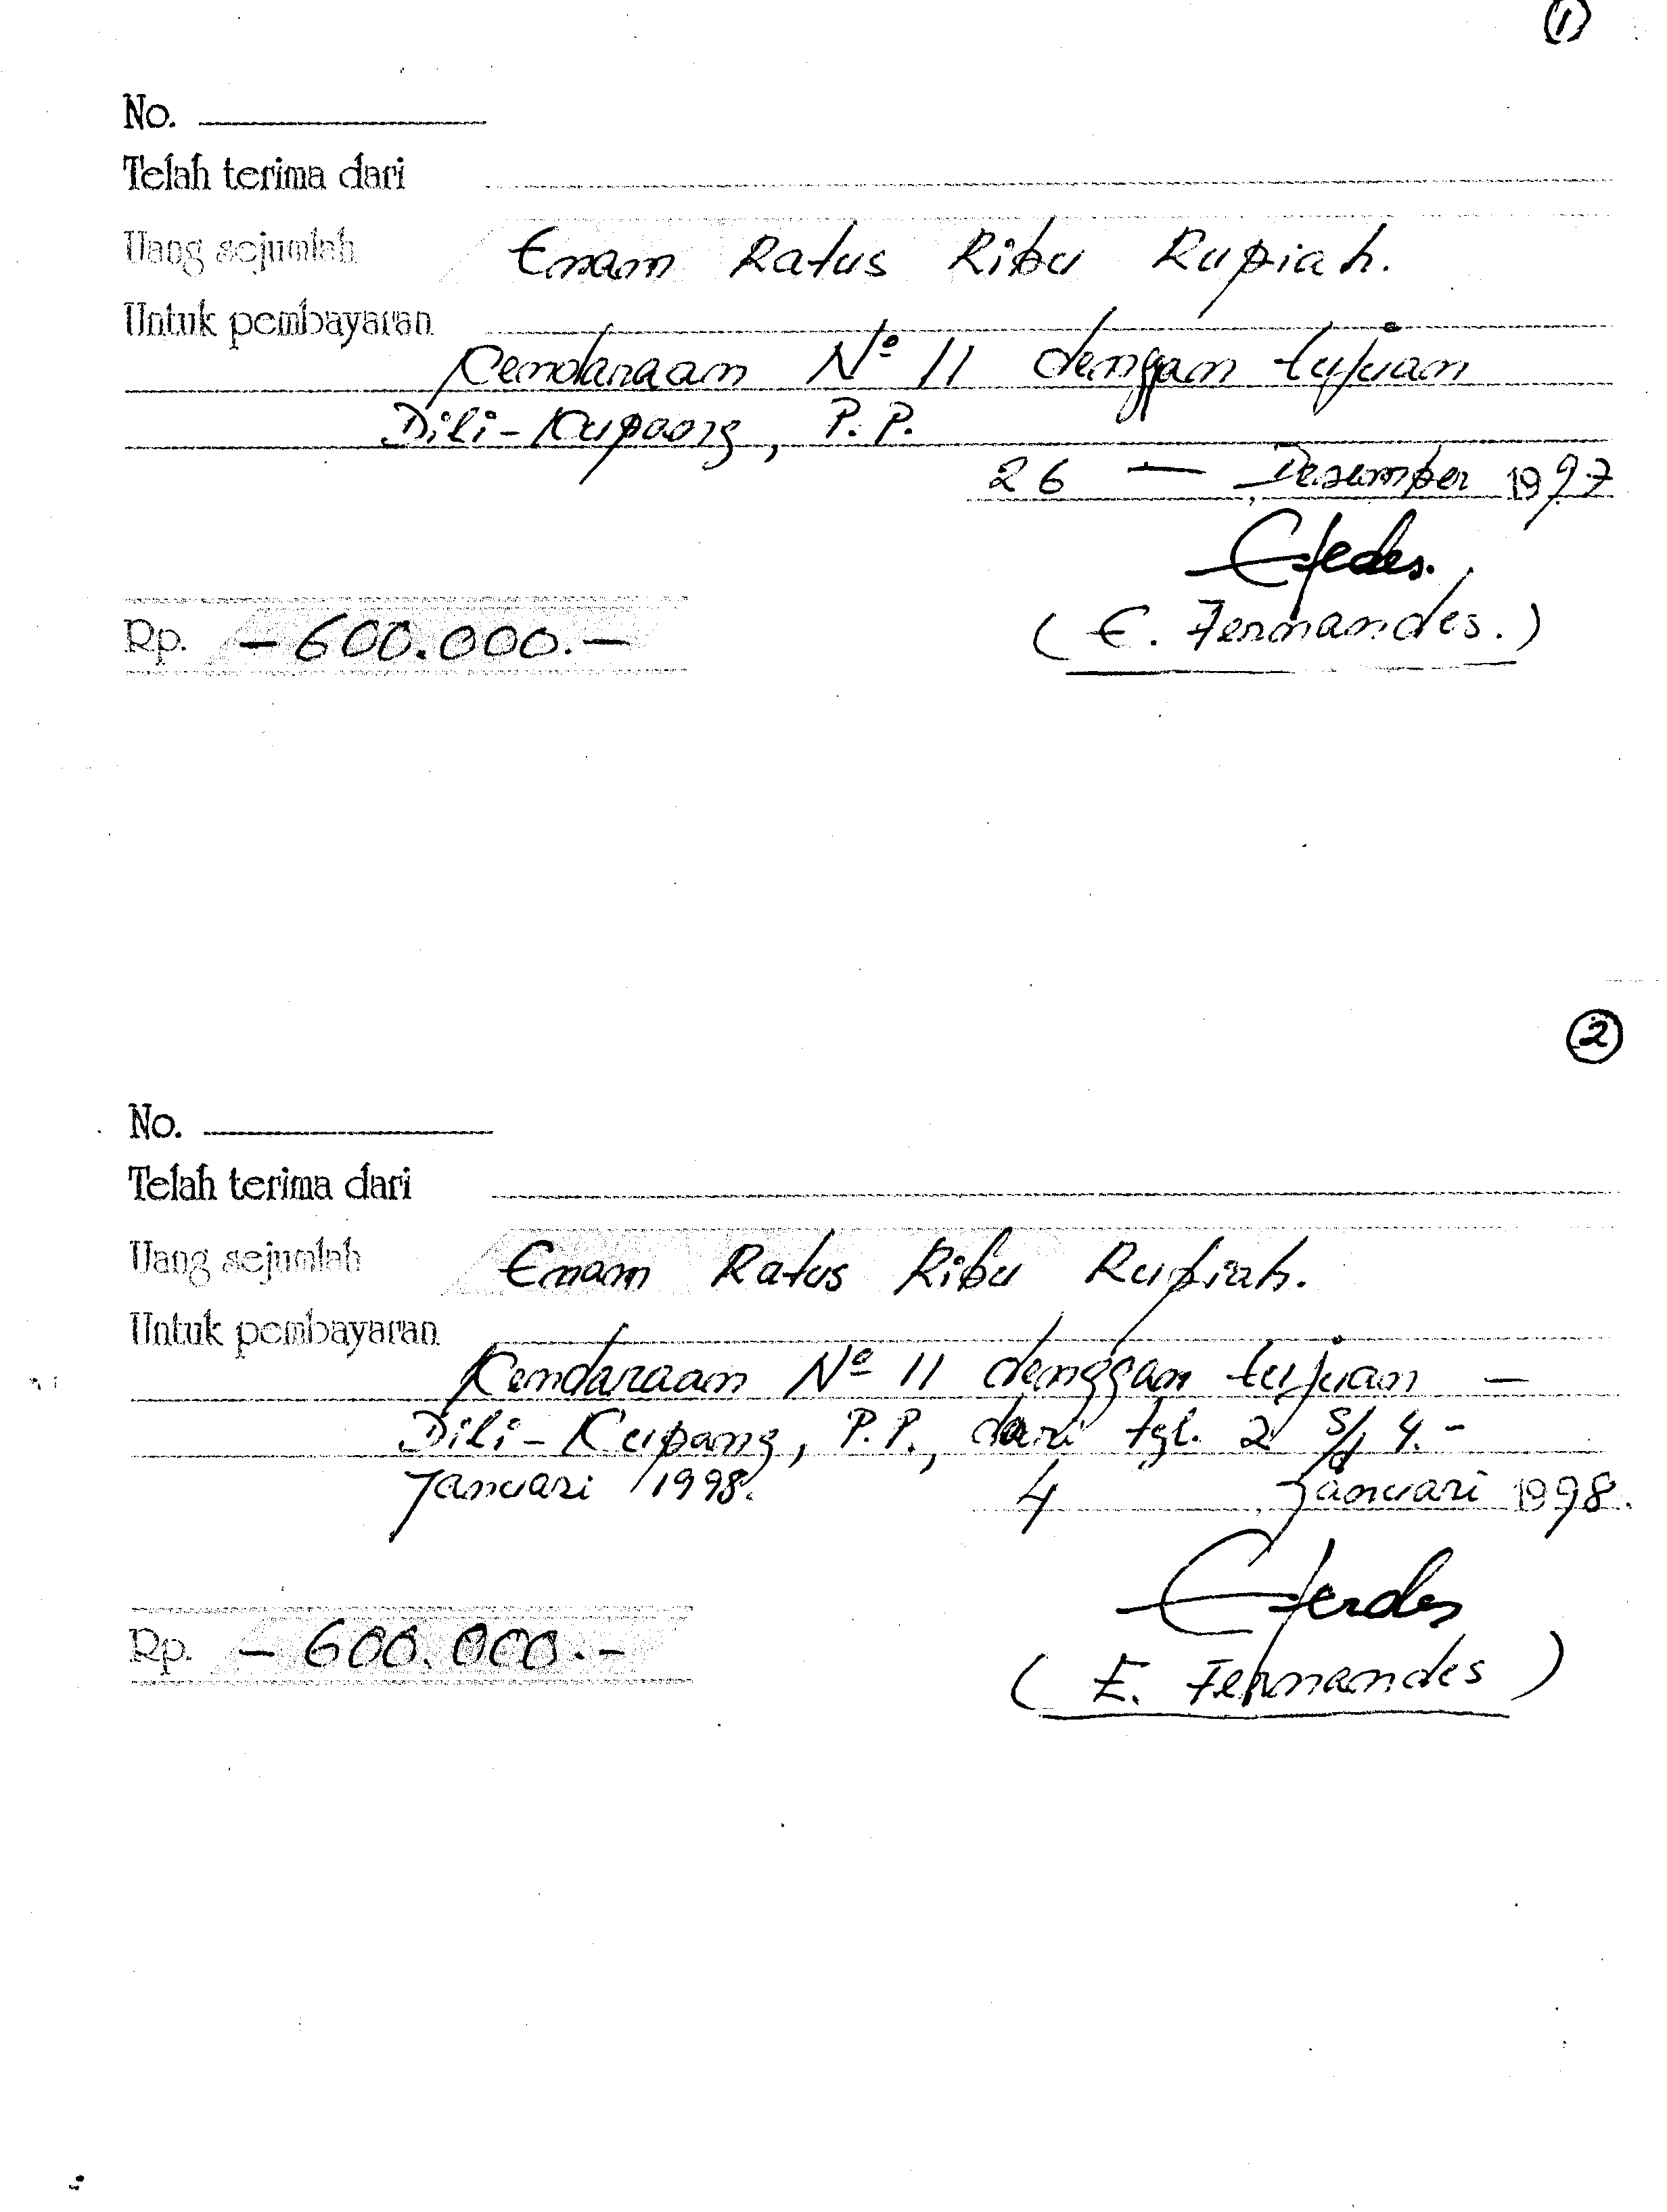 1
No.
Telah terima dari
Uang sejumlah Enam Ratus Ribu Rupiah.
Untuk pembayaran
Kendaraan Nº 11 denggan tujuan
Dili-Kupang, P.P.
26 — Desember 1997
Rp. – 600.000.–
(E. Fernandes.)
2
No.
Telah terima dari
Uang sejumlah Enam Ratus Ribu Rupiah.
Untuk pembayaran
Kendaraan Nº 11 denggan tujuan –
Dili-Kupang, P.P., dari tgl. 2 s/d 4.-
Januari 1998.
4, Januari 1998.
Rp. – 600.000.–
(E. Fernandes)